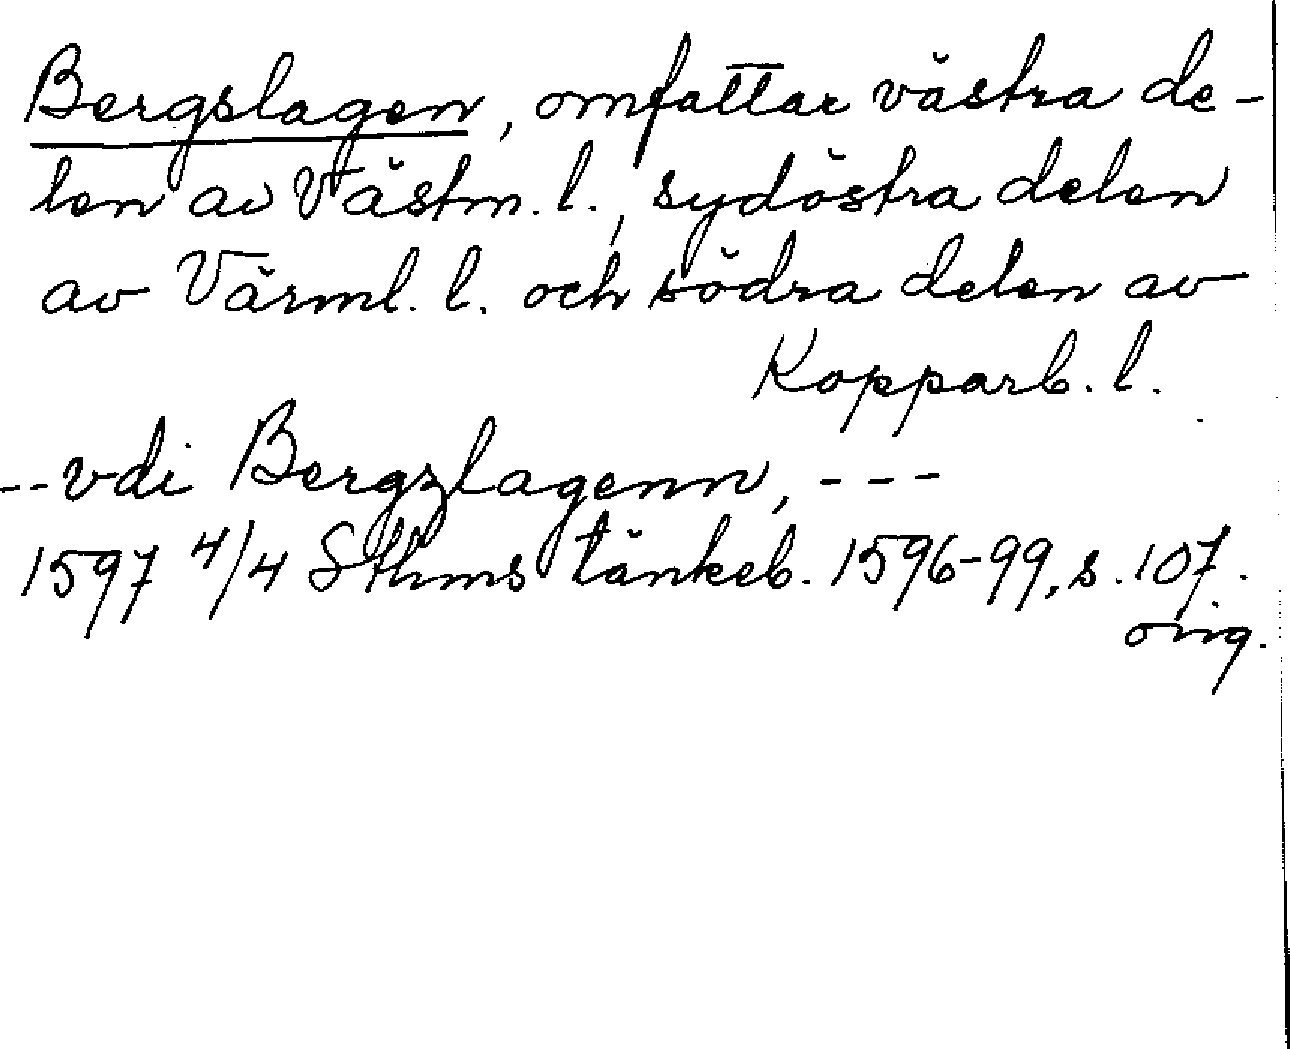 Bergslagen, omfattar västra de-
len av Västm. l., sydöstra delen
av Värml. l. och södra delen av
Kopparb. l.
--vdi Bergzlagenn, ---
1597 4/4 Sthms tänkeb. 1596-99, s. 107.
orig.